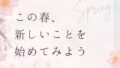 Spring
この春、
新しいことを
始めてみよう